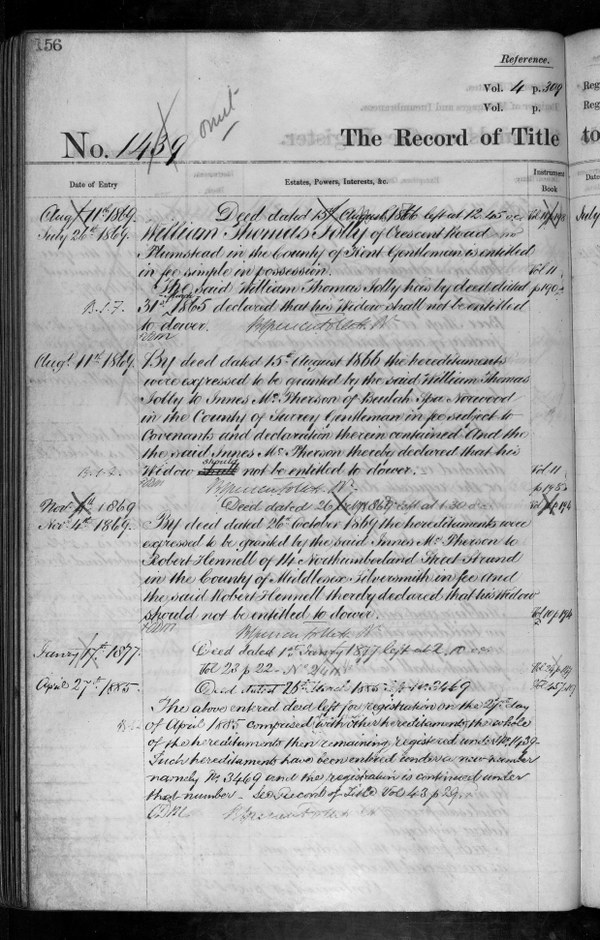 156
Reference.
Vol. 4 p. 309
Vol. p.
omit
No. 1439 The Record of Title
Date of Entry
Estates, Powers, Interests, &c.
Instrument
Book
Augt 11th 1869. Deed dated 15th August 1866 left at 12.45 Vol 11 p 195
July 26th 1869. William Thomas Jolly of Crescent Road in
Plumstead in the County of Kent Gentleman is entitled
in fee simple in possession. Vol 11
The said William Thomas Jolly has by deed dated p 190
B.1.7. 31st 1865 declared that his Widow shall not be entitled
to dower.
Augt 11th 1869. By deed dated 15th August 1866 the hereditaments
were expressed to be granted by the said William Thomas
Jolly to Innes Mc Pherson of Beulah Spa Norwood
in the County of Surrey Gentleman in fee subject to
Covenants and declaration therein contained And the
the said Innes Mc Pherson thereby declared that his
B.1.2. Widow should not be entitled to dower. Vol 11
p 195
Novr 4th 1869 Deed dated 26 1869 left at 1.30 Vol p 194
Novr 4th 1869. By deed dated 26th October 1869 the hereditaments were
expressed to be granted by the said Innes Mc Pherson to
Robert Hennell of 14 Northumberland Street Strand
in the County of Middlesex Silversmith in fee And
the said Robert Hennell thereby declared that his Widow
should not be entitled to dower. Vol 10 p 194
Janry 17th 1877. Deed dated 1st Janry 1877 left at 2.10
Vol 23 p 22
April 27th 1885. Deed dated 28th 1885 No 3469
The above entered deed left for registration on the 27th day
of April 1885 comprised with other hereditaments the whole
of the hereditaments then remaining registered under No. 1439
Such hereditaments have been entered under a new number
namely No. 3469 and the registration is continued under
that number - See Record of Title Vol 43 p 29.